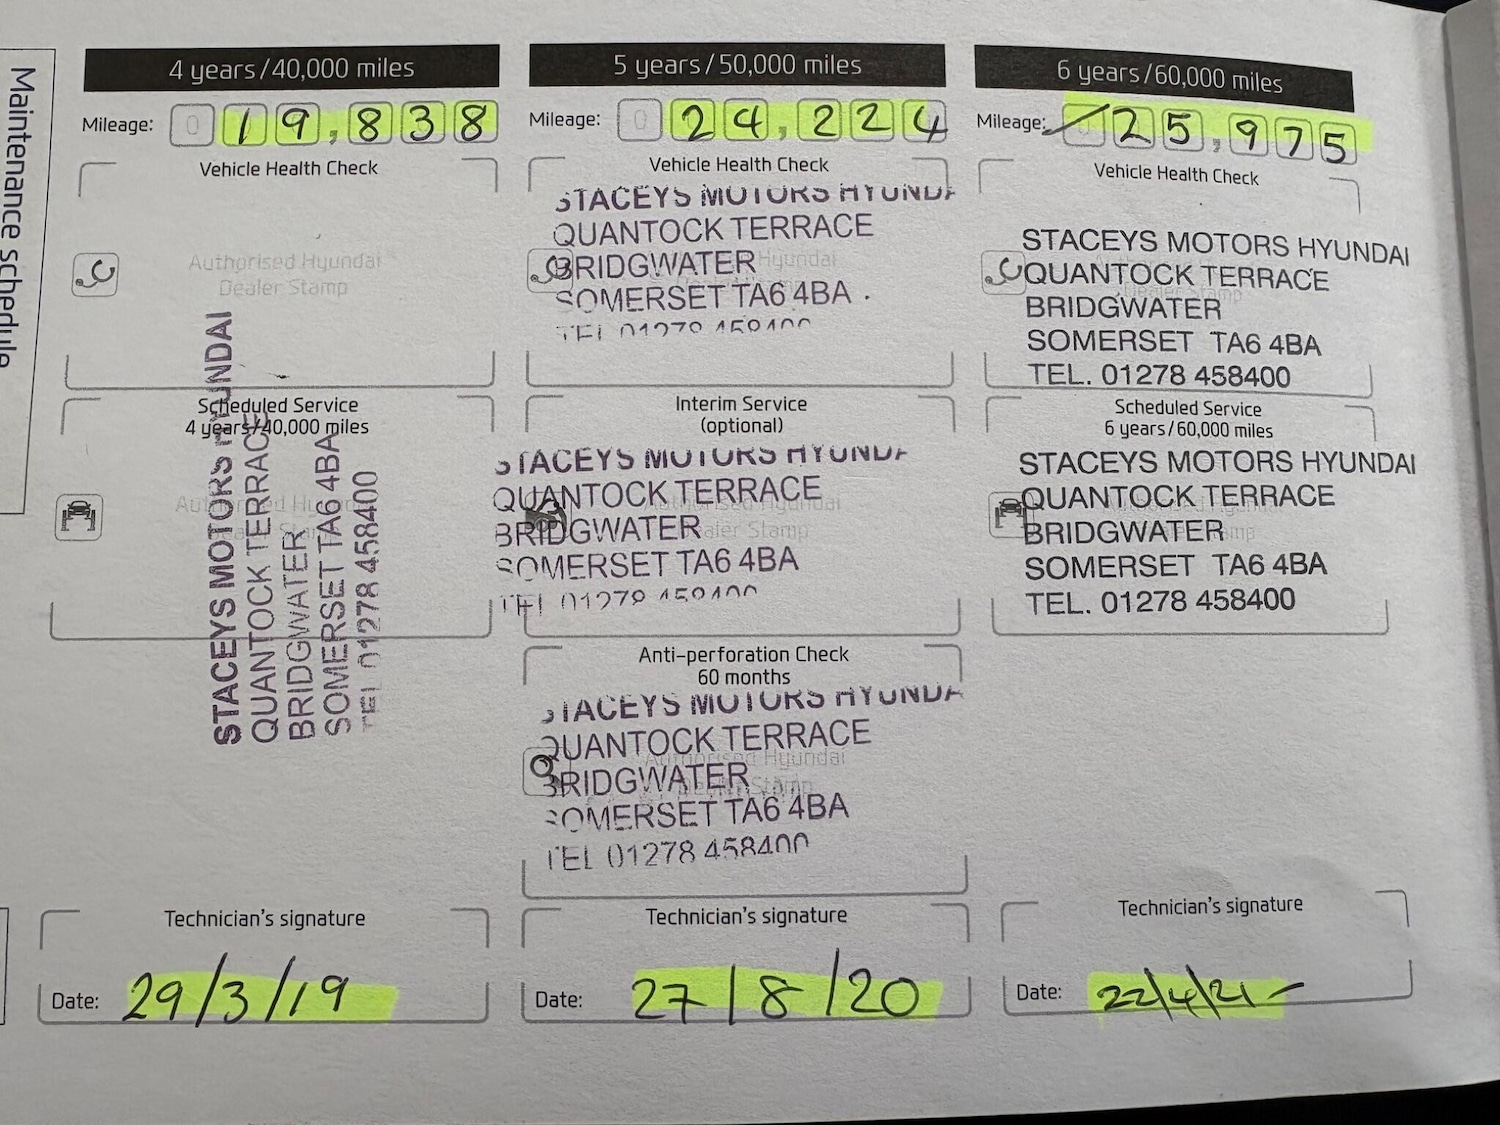 Maintenance schedule
4 years/40,000 miles
Mileage: 0 19,838
Vehicle Health Check
Authorised Hyundai
Dealer Stamp
Scheduled Service
4 years/40,000 miles
STACEYS MOTORS HYUNDAI
QUANTOCK TERRACE
BRIDGWATER
SOMERSET TA6 4BA
TEL 01278 458400
Technician's signature
Date: 29/3/19
5 years/50,000 miles
Mileage: 0 24,224
Vehicle Health Check
STACEYS MOTORS HYUNDA
QUANTOCK TERRACE
BRIDGWATER
SOMERSET TA6 4BA
TEL 01278 458400
Interim Service
(optional)
STACEYS MOTORS HYUNDA
QUANTOCK TERRACE
BRIDGWATER
SOMERSET TA6 4BA
TEL 01278 458400
Anti-perforation Check
60 months
STACEYS MOTORS HYUNDA
QUANTOCK TERRACE
BRIDGWATER
SOMERSET TA6 4BA
TEL 01278 458400
Technician's signature
Date: 27/8/20
6 years/60,000 miles
Mileage: 25,975
Vehicle Health Check
STACEYS MOTORS HYUNDAI
QUANTOCK TERRACE
BRIDGWATER
SOMERSET TA6 4BA
TEL. 01278 458400
Scheduled Service
6 years/60,000 miles
STACEYS MOTORS HYUNDAI
QUANTOCK TERRACE
BRIDGWATER
SOMERSET TA6 4BA
TEL. 01278 458400
Technician's signature
Date: 22/4/21